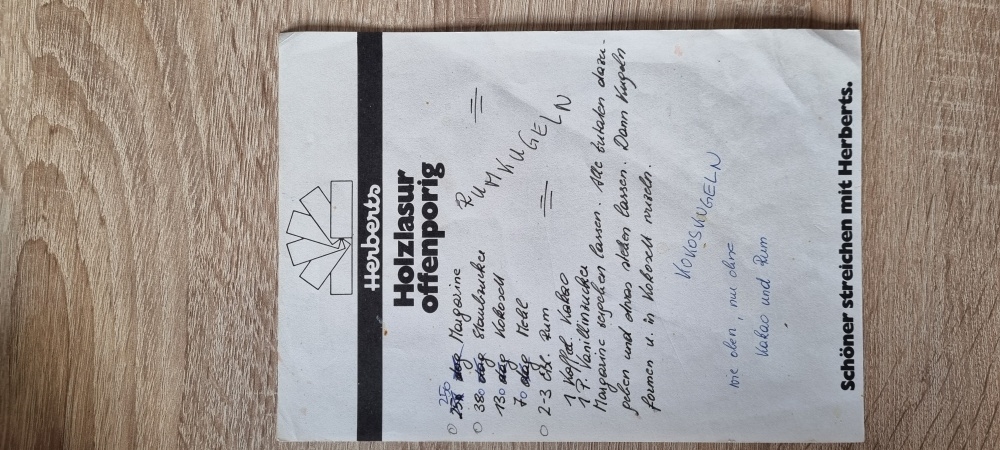 Herberts
Holzlasur
offenporig
RUMKUGELN
250 dag Margarine
380 dag Staubzucker
130 dag Kokosett
70 dag Mehl
2-3 Eßl. Rum
1 Kaffel. Kakao
1 P. Vanillinzucker
Margarine zergehen lassen. Alle Zutaten dazu-
geben und etwas stehen lassen. Dann Kugeln
formen u. in Kokosett wuzeln.
KOKOSKUGELN
wie oben, nur ohne
Kakao und Rum
Schöner streichen mit Herberts.